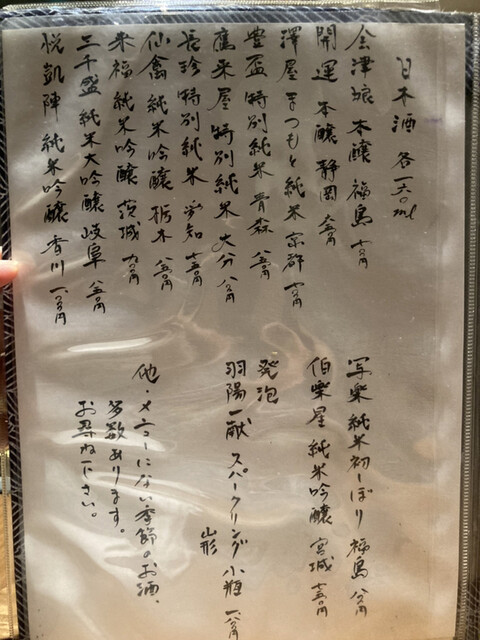 日本酒 各一六〇ml
会津娘 本醸 福島 七〇〇円
開運 本醸 静岡 六五〇円
澤屋まつもと 純米 京都 七〇〇円
豊盃 特別純米 青森 八五〇円
鷹来屋 特別純米 大分 八〇〇円
長珍 特別純米 愛知 七五〇円
仙禽 純米吟醸 栃木 八五〇円
来福 純米吟醸 茨城 九〇〇円
三千盛 純米大吟醸 岐阜 八五〇円
悦凱陣 純米吟醸 香川 一、〇〇〇円
写楽 純米初しぼり 福島 八〇〇円
伯楽星 純米吟醸 宮城 七五〇円
発泡
羽陽一献 スパークリング小瓶 一、八〇〇円
山形
他・メニューにない季節のお酒、
多数あります。
お尋ね下さい。